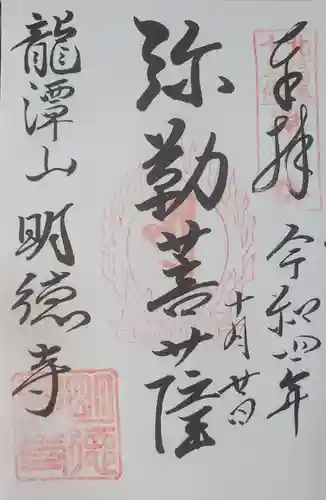 奉拝
令和四年
十月廿日
弥勒菩薩
龍潭山 明徳寺